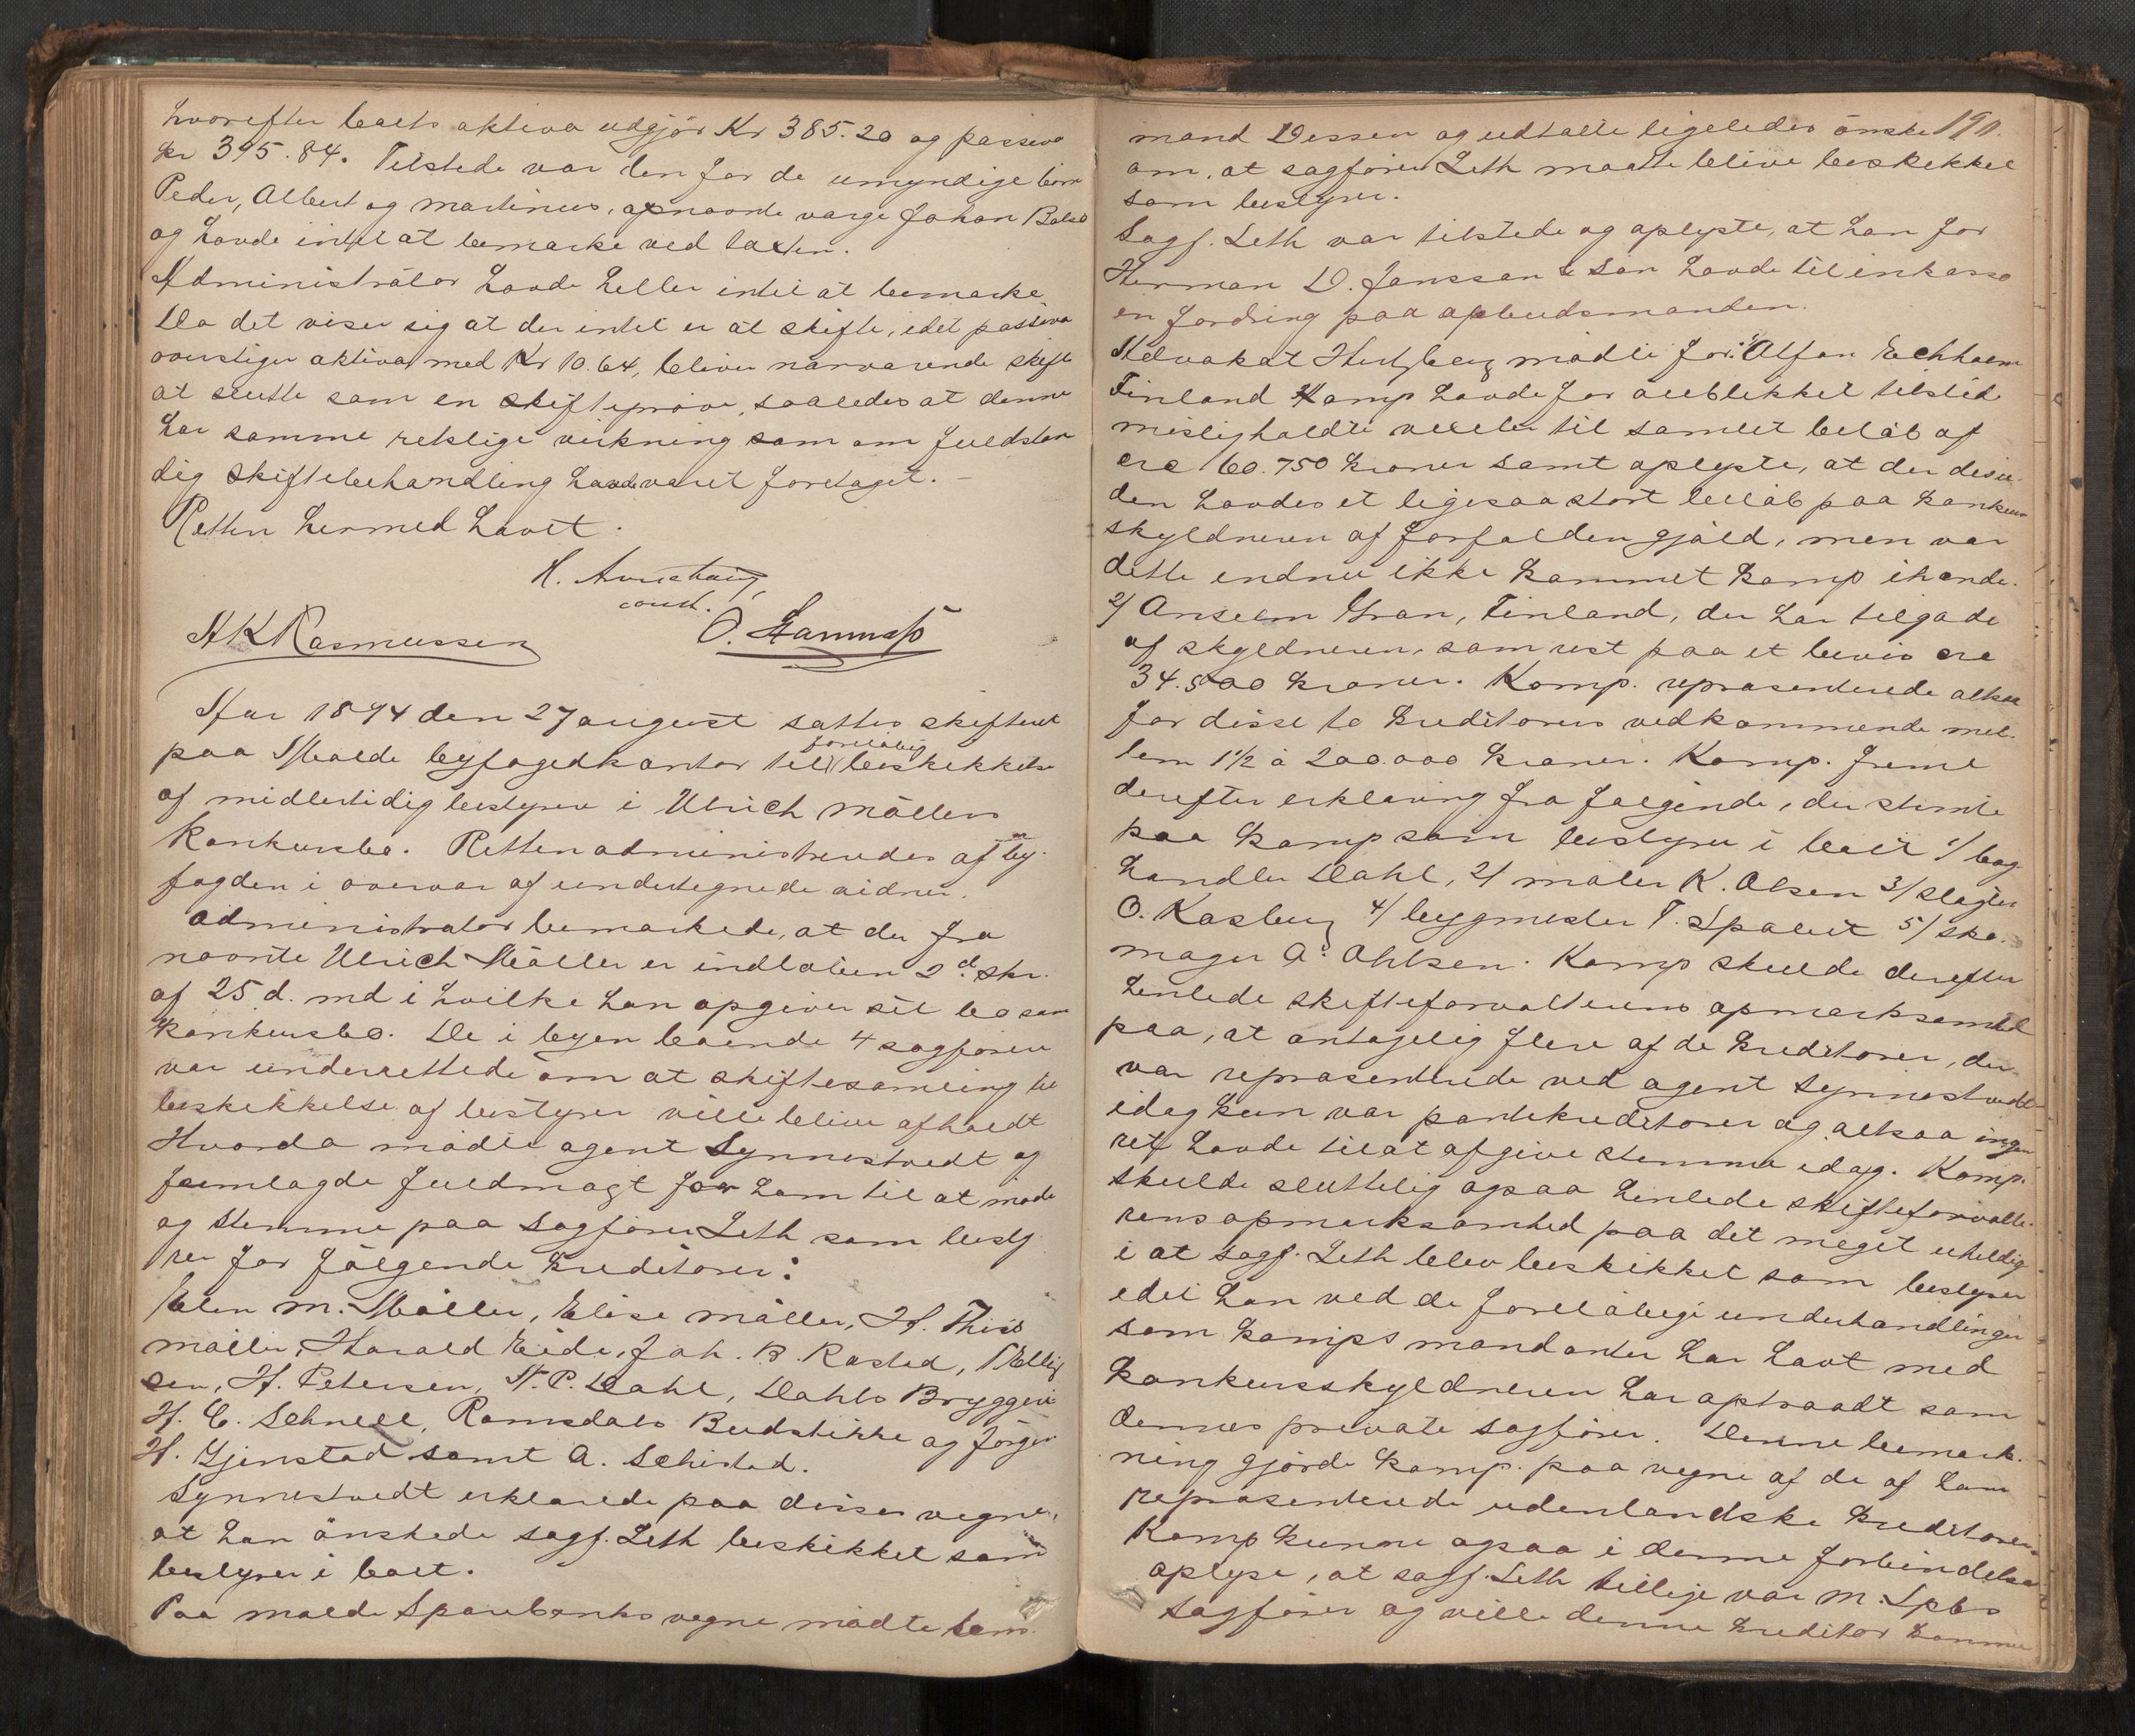 hvorefter boets aktiva udgjör Kr 385.20 og passiva
kr 395.84. Tilstede var den for de umyndige börn
Peder, Albert og Martinus, opnævnte værge Johan
og havde intet at bemærke ved taxten.
Administrator havde heller intet at bemærke
Da det viser sig at der intet er at skifte, idet passiva
overstiger aktiva med Kr 10.64, bliver nærværende skifte
at slutte som en skifteprøve, saaledes at denne
har samme retslige virkning som om fuldstæn
dig skiftebehandling havde været foretaget. –
Retten hermed hævet.
const.
A K Rasmussen
Aar 1894 den 27 august sattes skifteret
paa Molde byfogedkontor til foreløbig beskikkelse
af midlertidig bestyrer i Ulrich Möllers
konkursbo. Retten administreredes af by-
fogden i overvær af undertegnede vidner.
Administrator bemærkede, at der fra
nævnte Ulrich Möller er indlöben 2d. skr.
af 25 d. md i hvilke han opgiver sit bo som
konkursbo. De i byen boende 4 sagförere
var underrettede om at skiftesamling til
beskikkelse af bestyrer ville blive afholdt
Hvorda mödte agent Synnestvedt og
fremlagde fuldmagt for ham til at möde
og stemme paa sagförer Leth som besty
rer for fölgende kreditorer:
Elen M. Möller, Elise Möller, H. Thiis
Möller, Harald Eide, Joh. B. Rasted,
sen, H. Petersen, N. P. Dahl, Dahls Bryggeri
H. C. Schnell, Romsdals Budstikke og Jörgen
H. Gjenstad samt A. Schistad.
Synnestvedt erklærede paa disses vegne,
at han önskede sagf. Leth beskikket som
bestyrer i boet.
Paa Molde Sparebanks vegne mödte lens
mand Dessen og udtalte ligeledes önske 190.
om, at sagförer Leth maatte blive beskikket
som bestyrer.
Sagf. Leth var tilstede og oplyste, at han for
Herman D. Janssen & Sön havde til inkasso
en fordring paa opbudsmanden.
Advokat Hertzberg mödte for: 1/ Alfon Echholm
Finland Komp havde for öieblikket tilstede
misligholdte vexler til samlet belöb af
cra 60.750 kroner samt oplyste, at der desu-
den havdes et ligesaa stort belöb paa konkurs
skyldneren af forfalden gjæld, men var
dette endnu ikke kommet komp ihænde.
2/ Anselm Gran, Finland, der har tilgode
af skyldneren, som rest paa et bevis cra
34.500 kroner. Komp. repræsenterede altsaa
for disse to kreditorers vedkommende mel-
lem 1½ à 200.000 kroner. Komp. freml
derefter erklæring fra fölgende, der stemte
paa komp som bestyrer i boet 1/ bog-
handler Dahl, 2/ maler K. Olsen 3/ slagter
O. Kasberg 4/ bygmester T. Spalvit 5/ sko-
mager A. Ohlsen. Komp skulde derefter
henlede skifteforvalterens opmærksomhed
paa, at antagelig flere af de kreditorer, der
var repræsenterede ved agent Synnestvedt
idag kun var pantekreditorer og altsaa ingen
ret havde til at afgive stemme idag. Komp.
skulde sluttelig ogsaa henlede skifteforvalte-
rens opmærksomhed paa det meget uheldige
i at sagf. Leth blev beskikket som bestyrer
idet han ved de forelöbige underhandlinger
som komps mandanter har havt med
konkursskyldneren har optraadt som
dennes private sagförer. Denne bemærk-
ning gjorde komp. paa vegne af de af ham
repræsenterede udenlandske kreditorer.
Komp kunne ogsaa i denne forbindelse
oplyse, at sagf. Leth tillige var M. Spbs
sagförer og ville denne kreditor komme